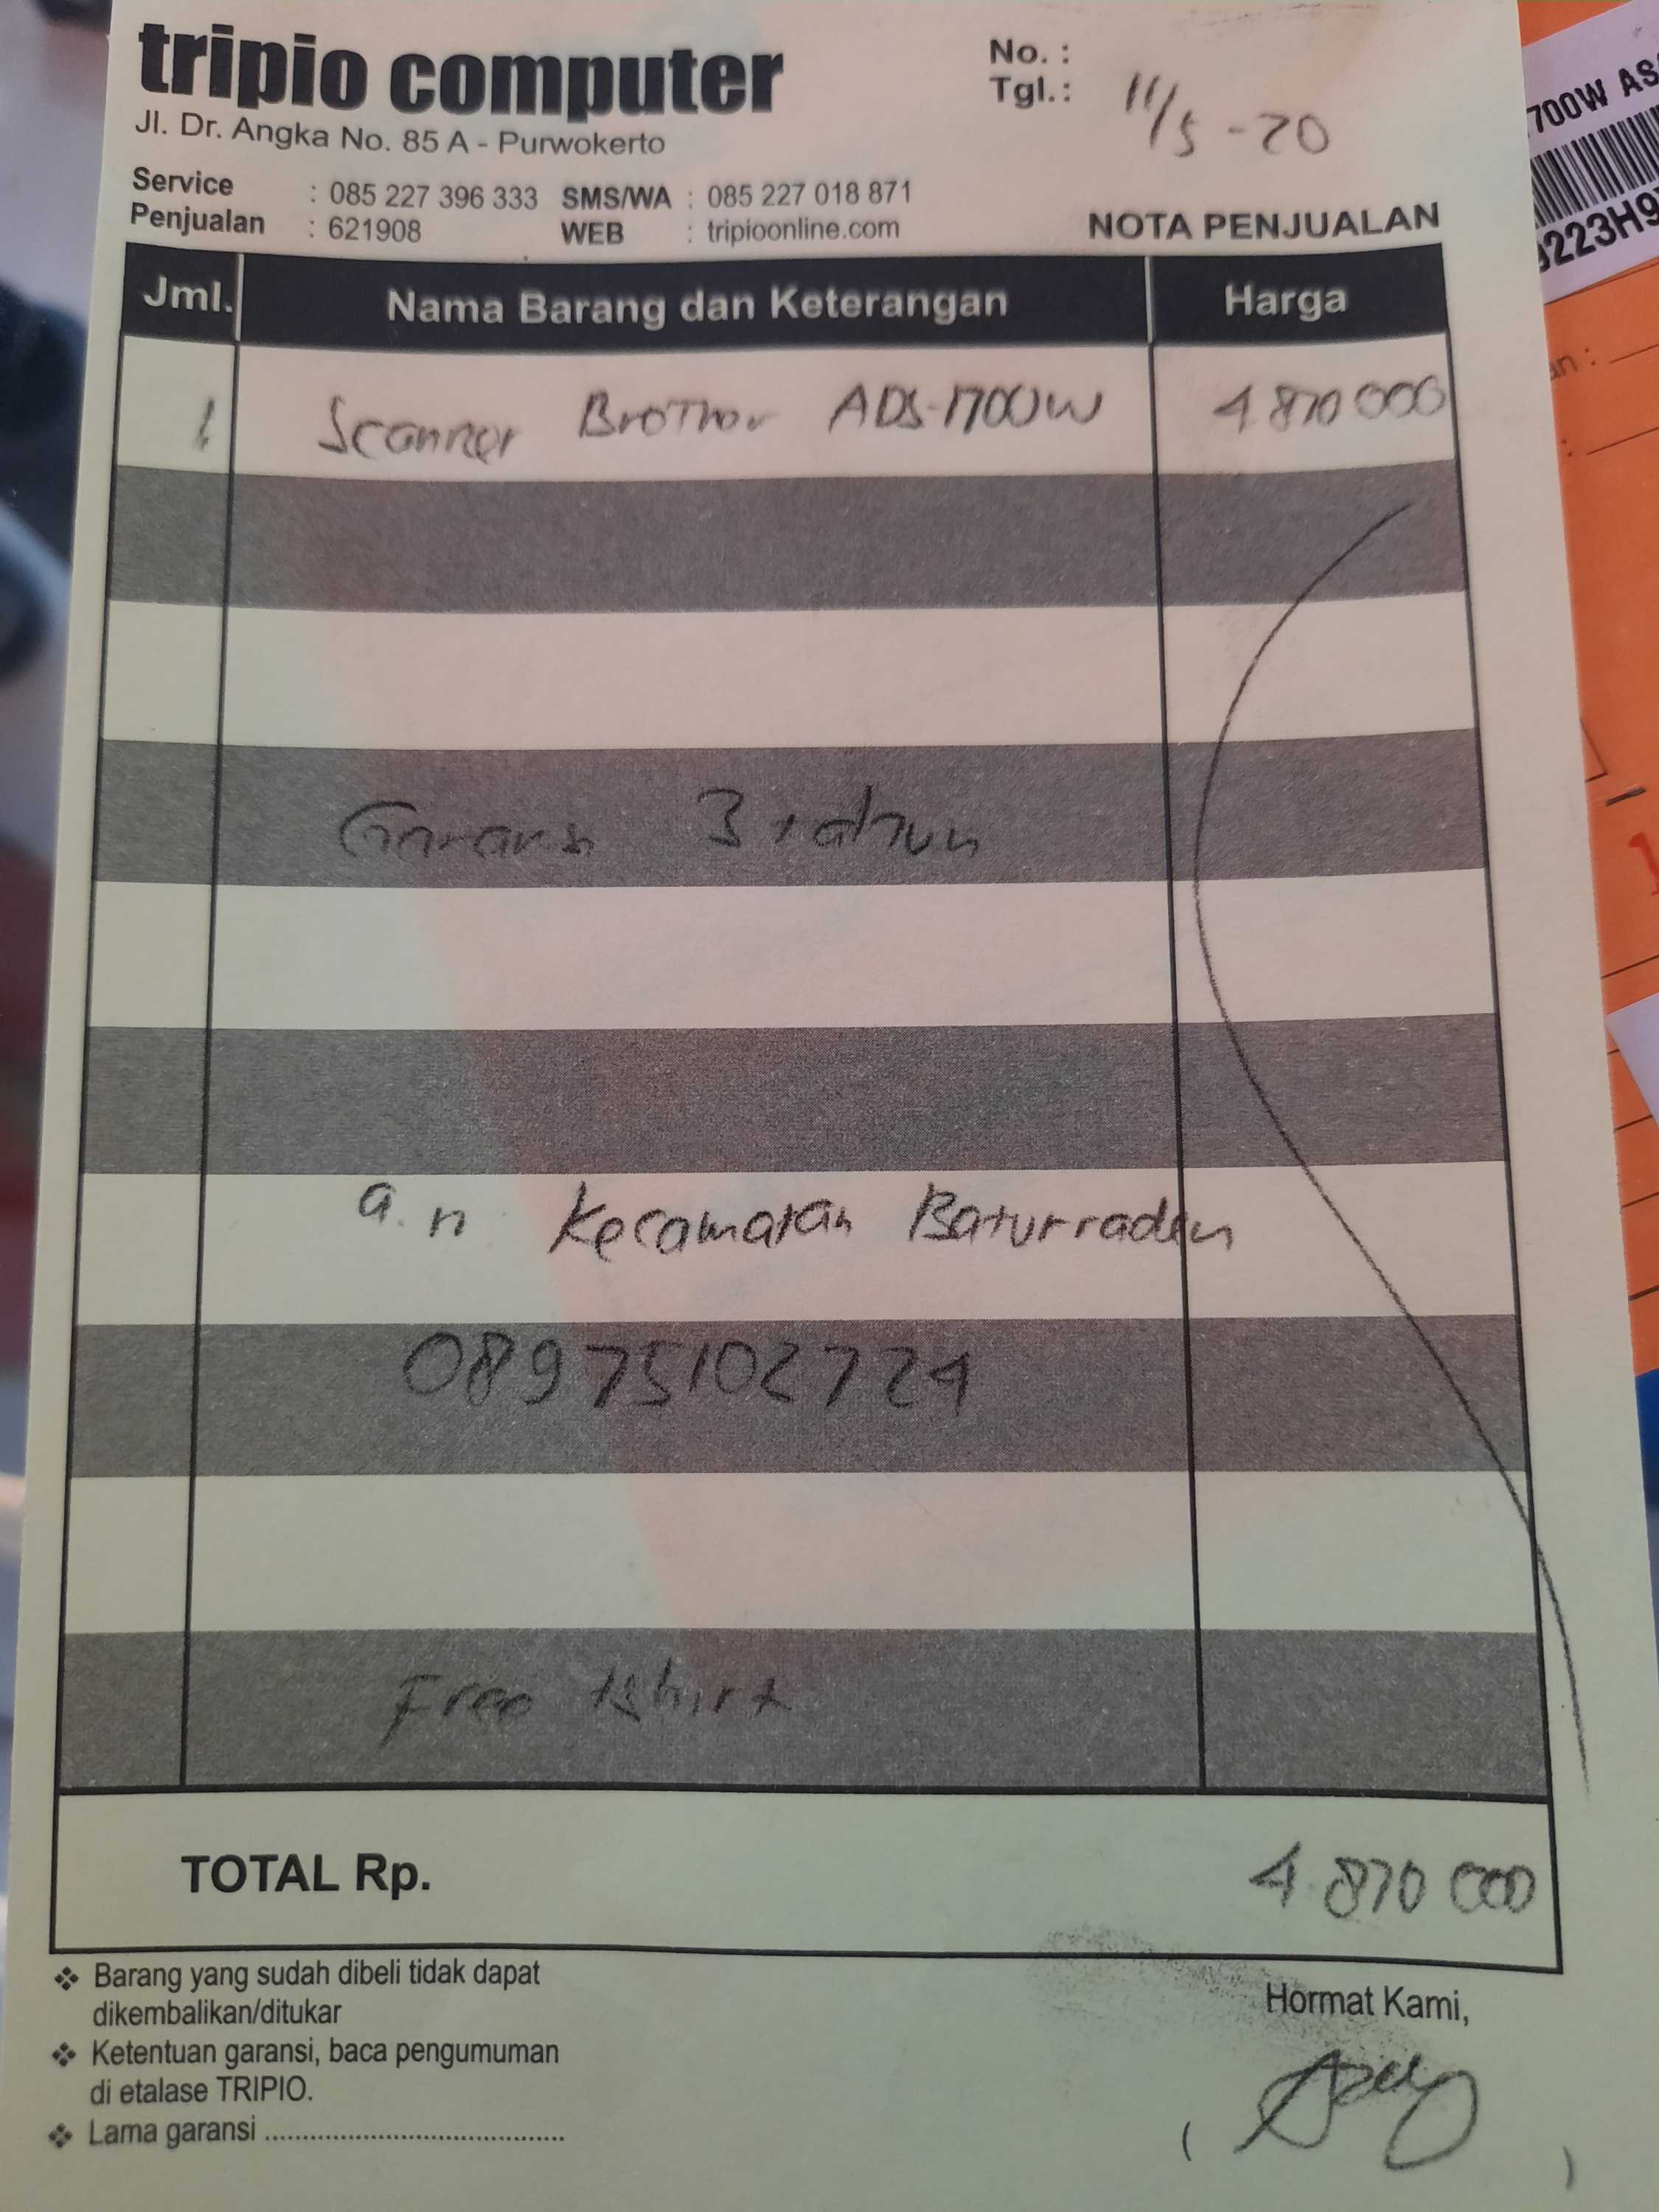 tripio computer
Jl. Dr. Angka No. 85 A - Purwokerto
No. :
Tgl. : 11/5 - 20
Service : 085 227 396 333 SMS/WA : 085 227 018 871
Penjualan : 621908 WEB : tripioonline.com
NOTA PENJUALAN
Jml. Nama Barang dan Keterangan Harga
1 Scanner Brother ADS-1700W 4 870 000
Garansi 3 tahun
a.n Kecamatan Baturraden
08975102724
Free tshirt
TOTAL Rp. 4 870 000
❖ Barang yang sudah dibeli tidak dapat
dikembalikan/ditukar
❖ Ketentuan garansi, baca pengumuman
di etalase TRIPIO.
❖ Lama garansi ........................................
Hormat Kami,
( )
700W AS
223H9
an :
: